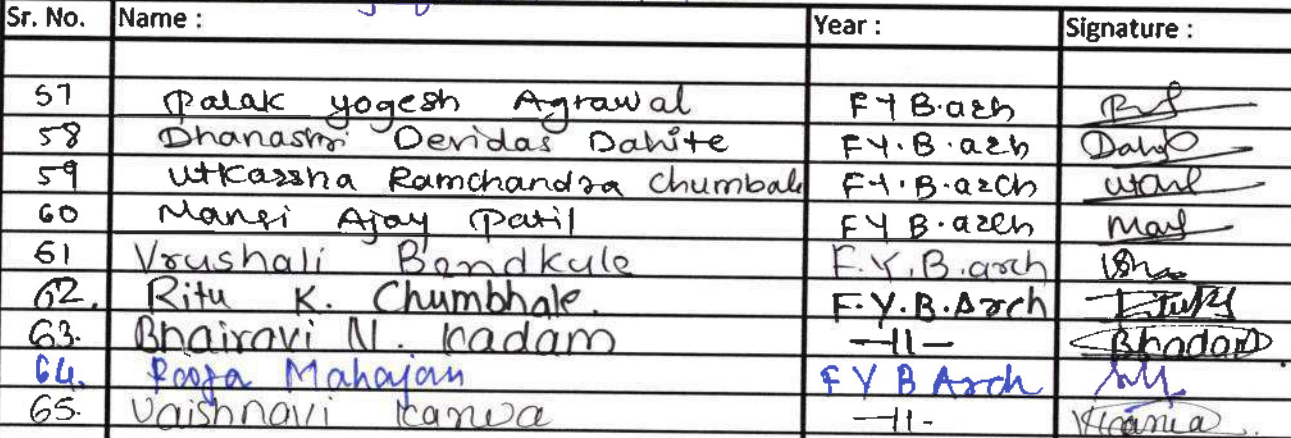 Sr. No. Name : Year : Signature :
57 Palak yogesh Agrawal F Y B.arch
58 Dhanashri Devidas Dahite F.Y.B.arch
59 Utkarsha Ramchandra Chumbale F.Y.B.arch
60 Mansi Ajay Patil F Y B.arch
61 Vrushali Bendkule F.Y.B.arch
62. Ritu K. Chumbhale. F.Y.B.Arch
63. Bhairavi N. Kadam —11—
64. Pooja Mahajan F Y B Arch
65. Vaishnavi —11-